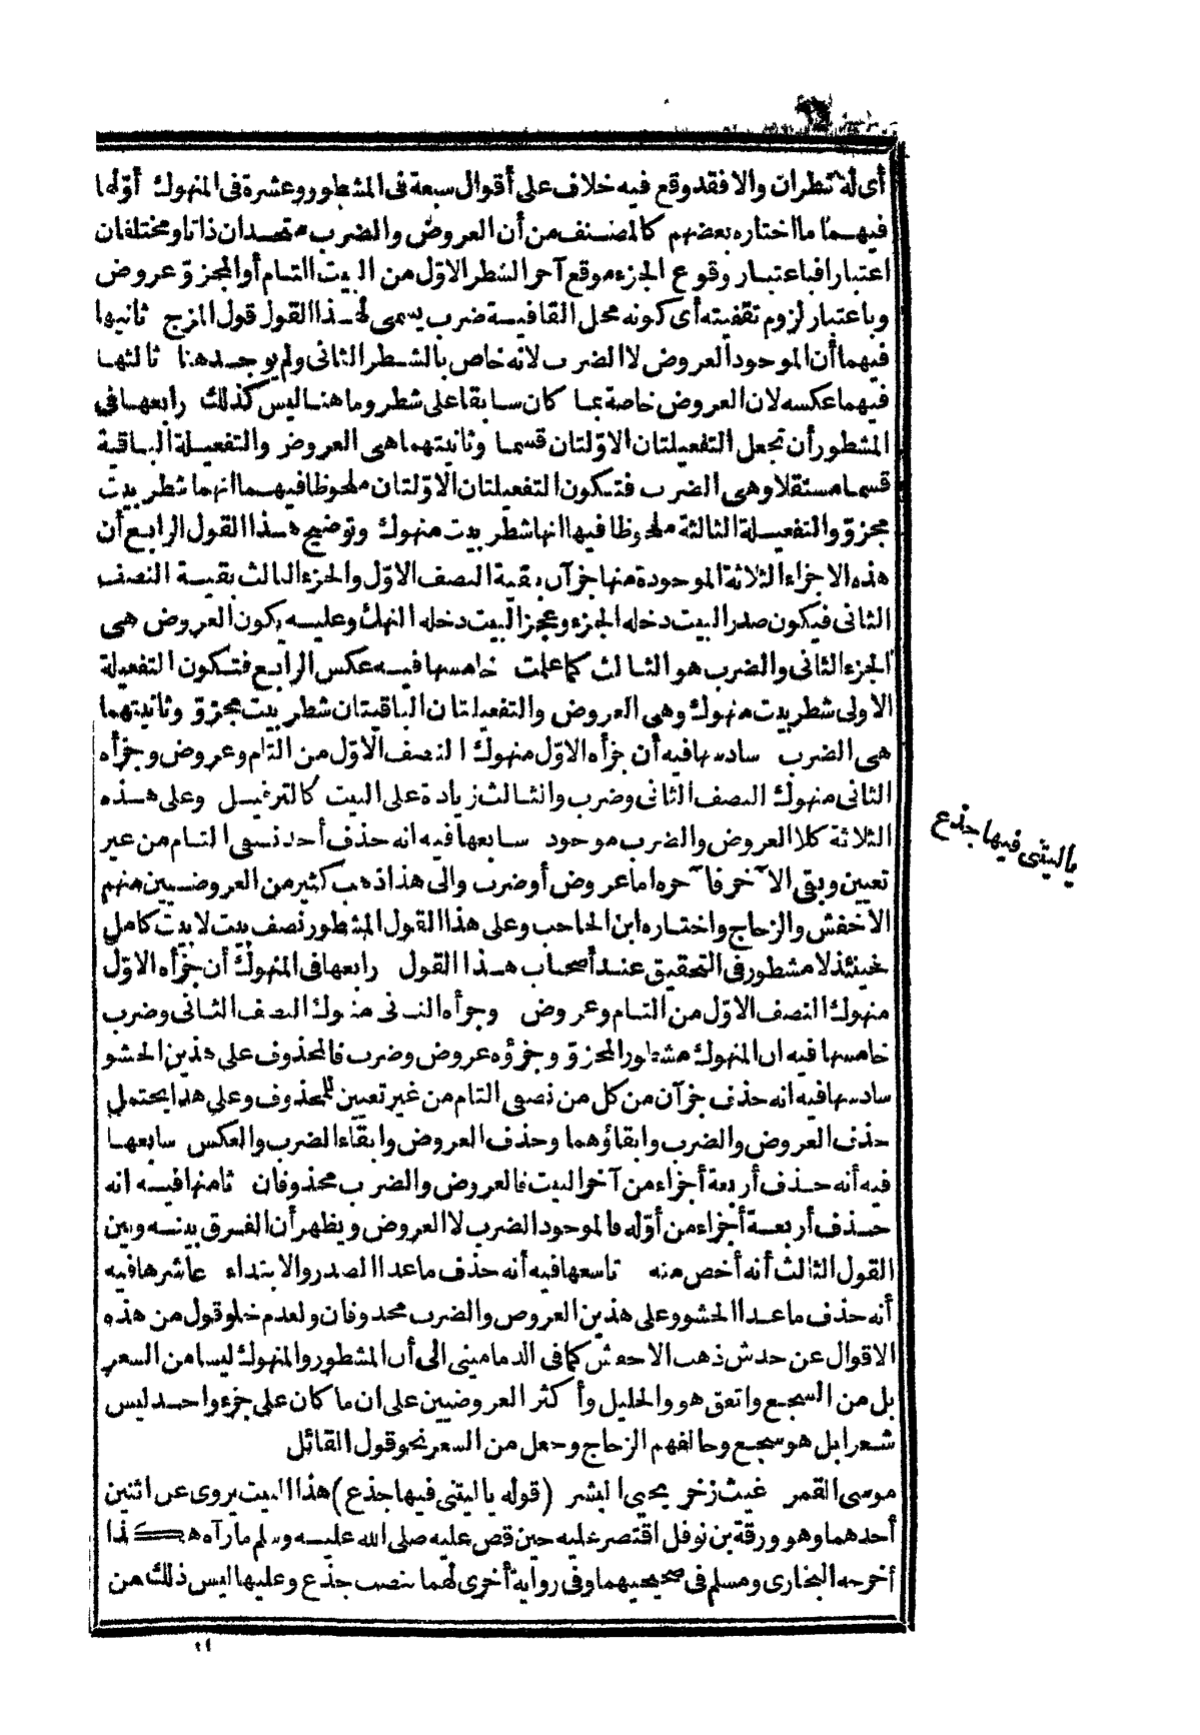 أى له شطران والا فقد وقع فيه خلاف على أقوال سبعة فى المشطور وعشرة فى المنهوك أوّلها
فيهما ما اختاره بعضهم كالمصنف من أن العروض والضرب متحدان ذاتا ومختلفان
اعتبارا فباعتبار وقوع الجزء موقع آخر الشطر الاوّل من البيت التام أو المجزوّ عروض
وباعتبار لزوم تقفيته أى كونه محل القافية ضرب يسمى لهذا القول قول المزج ثانيها
فيهما أن الموجود العروض لا الضرب لانه خاص بالشطر الثانى ولم يوجد هنا ثالثها
فيهما عكسه لان العروض خاصة بما كان سابقا على شطر وما هنا ليس كذلك رابعها فى
المشطور أن تجعل التفعيلتان الاوّلتان قسما وثانيتهما هى العروض والتفعيلة الباقية
قسما مستقلا وهى الضرب فتكون التفعيلتان الاوّلتان ملحوظا فيهما انهما شطر بيت
مجزوّ والتفعيلة الثالثة ملحوظا فيها انها شطر بيت منهوك وتوضيح هذا القول الرابع أن
هذه الاجزاء الثلاثة الموجودة منها جزآن بقية النصف الاوّل والجزء الثالث بقية النصف
الثانى فيكون صدر البيت دخله الجزء وعجز البيت دخله النهك وعليه يكون العروض هى
الجزء الثانى والضرب هو الثالث كما علمت خامسها فيه عكس الرابع فتكون التفعيلة
الاولى شطر بيت منهوك وهى العروض والتفعيلتان الباقيتان شطر بيت مجزوّ وثانيتهما
هى الضرب سادسها فيه أن جزأه الاوّل منهوك النصف الاوّل من التام وعروض وجزأه
الثانى منهوك النصف الثانى وضرب والثالث زيادة على البيت كالترفيل وعلى هذه
الثلاثة كلا العروض والضرب موجود سابعها فيه انه حذف أحد نصفى التام من غير
تعيين وبقى الآخر فآخره اما عروض أو ضرب والى هذا ذهب كثير من العروضيين منهم
الاخفش والزجاج واختاره ابن الحاجب وعلى هذا القول المشطور نصف بيت لا بيت كامل
فحينئذ لا مشطور فى التحقيق عند أصحاب هذا القول رابعها فى المنهوك أن جزأه الاوّل
منهوك النصف الاوّل من التام وعروض وجزأه الثانى منهوك النصف الثانى وضرب
خامسها فيه ان المنهوك مشطور المجزوّ وجزؤه عروض وضرب فالمحذوف على هذين الحشو
سادسها فيه انه حذف جزآن من كل من نصفى التام من غير تعيين للمحذوف وعلى هذا يحتمل
حذف العروض والضرب وابقاؤهما وحذف العروض وابقاء الضرب والعكس سابعها
فيه أنه حذف أربعة أجزاء من آخر البيت فالعروض والضرب محذوفان ثامنها فيه انه
حذف أربعة أجزاء من أوّله فالموجود الضرب لا العروض ويظهر أن الفرق بينه وبين
القول الثالث أنه أخص منه تاسعها فيه أنه حذف ما عدا الصدر والابتداء عاشرها فيه
أنه حذف ما عدا الحشو وعلى هذين العروض والضرب محذوفان ولعدم خلو قول من هذه
الاقوال عن خدش ذهب الاخفش كما فى الدمامينى الى أن المشطور والمنهوك ليسا من الشعر
بل من السجع واتفق هو والخليل وأكثر العروضيين على ان ما كان على جزء واحد ليس
شعرا بل هو سجع وخالفهم الزجاج وجعل من الشعر نحو قول القائل
موسى القمر غيث زخر يحيى البشر (قوله يا ليتنى فيها جذع) هذا البيت يروى عن اثنين
أحدهما وهو ورقة بن نوفل اقتصر عليه حين قص عليه صلى الله عليه وسلم ما رآه هكذا
أخرجه البخارى ومسلم فى صحيحيهما وفى رواية أخرى لهما بنصب جذع وعليها ليس ذلك من
يا ليتنى فيها جذع